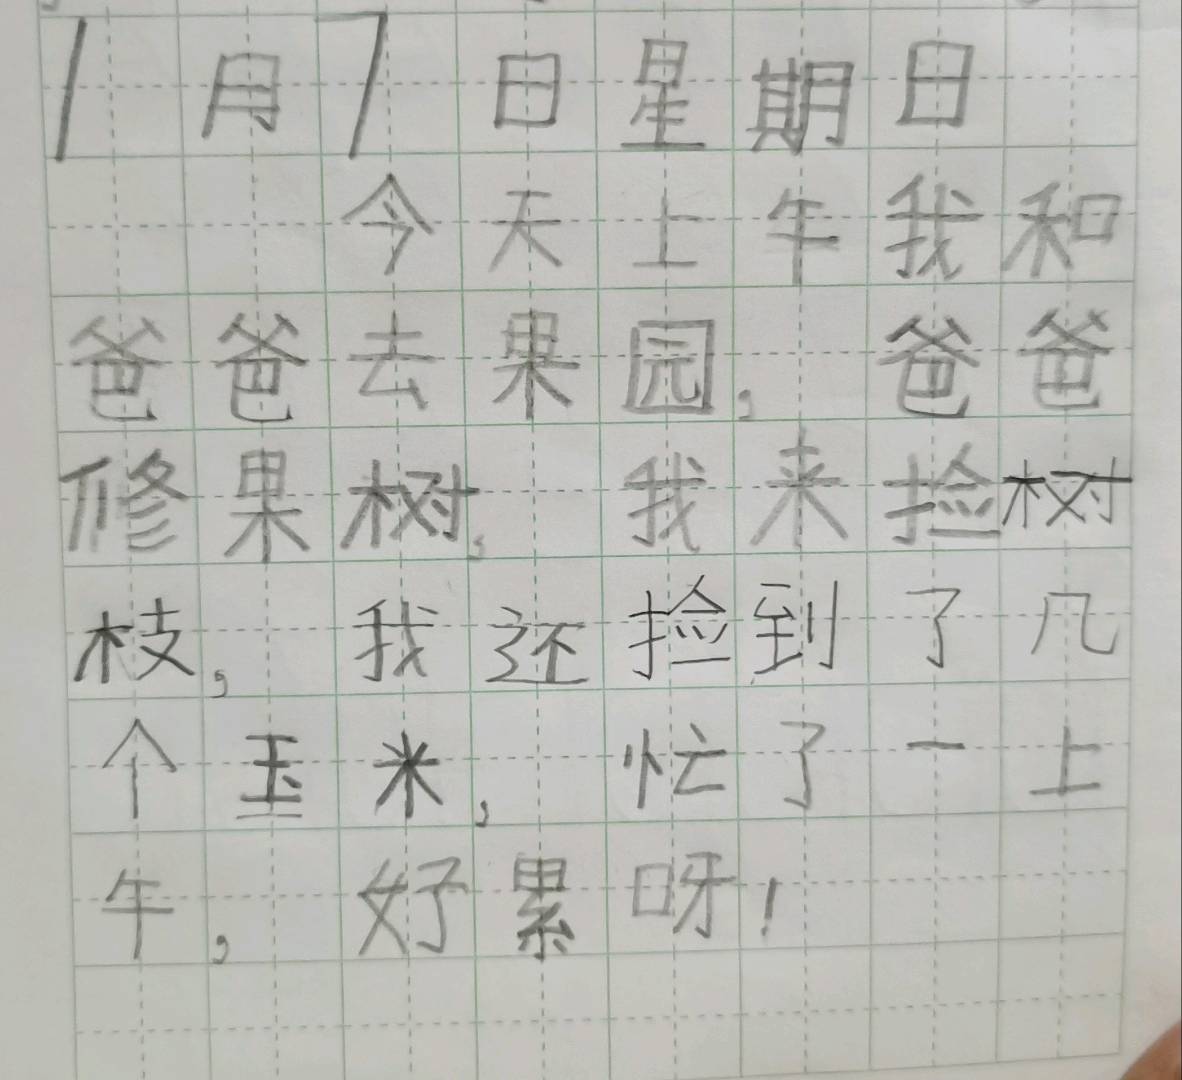 1月7日星期日
今天上午我和
爸爸去果园，爸爸
修果树，我来捡树
枝，我还捡到了几
个玉米，忙了一上
午，好累呀！